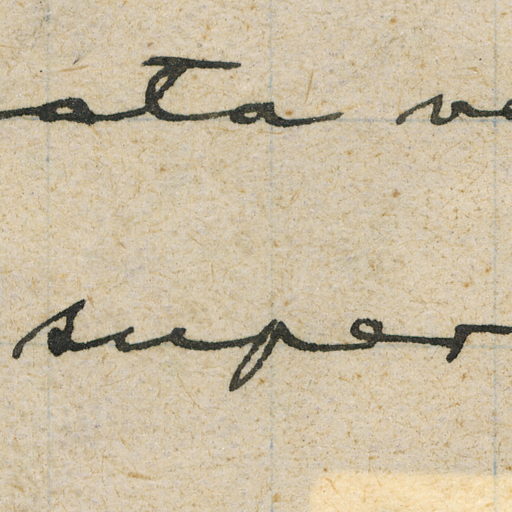 ata ve
super